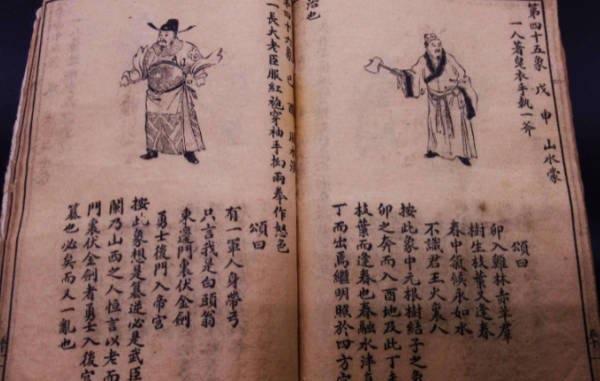 第四十五象 戊申 山水蒙
一人著皂衣手執一斧
頌曰
卯入雞林亦羊群
樹生枝葉又逢春
春中須候永如水
不識君王火東人
按此象中元根樹結子之
卯之奔而入酉地及此丁
枝葉而逢春也春融水津
丁而出焉繼明照於四方
治也
四十六象 己酉 風水渙
一長大老臣服紅袍穿袖手掏兩拳作怒色
頌曰
有一軍人身帶弓
只言我是白頭翁
東邊門裏伏金劍
勇士後門入帝宮
按此象想是篡逆必是武臣
關乃山西之人恒言以老而
門裏伏金劍者勇士入後宮
篡也必矣而又一亂也